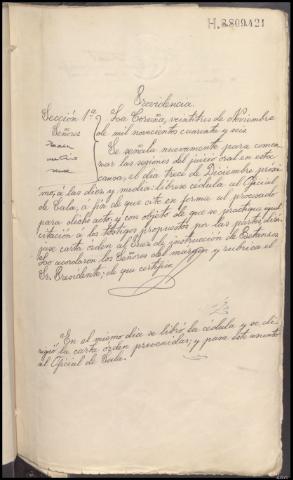 H.8809421
Providencia.
Sección 1ª La Coruña, veintitres de Noviembre
Señores de mil novecientos cuarenta y seis
Se señala nuevamente para comen-
zar las sesiones del juicio oral en esta
causa, el día trece de Diciembre próxi-
mo, a las diez y media: librese cédula al Oficial
de Sala, a fin de que cite en forma al procesado
para dicho acto, y con objeto de que se practique igual
citación a los testigos propuestos por las partes, diri-
jase carta órden al Juez de instrucción de Betanzos.
Lo acordaron los Señores del margen y rubrica el
Sr. Presidente; de que certifico.
En el mismo dia se libró la cédula y se di-
rigió la carta órden prevenidas; y pasa este asunto
al Oficial de Sala.